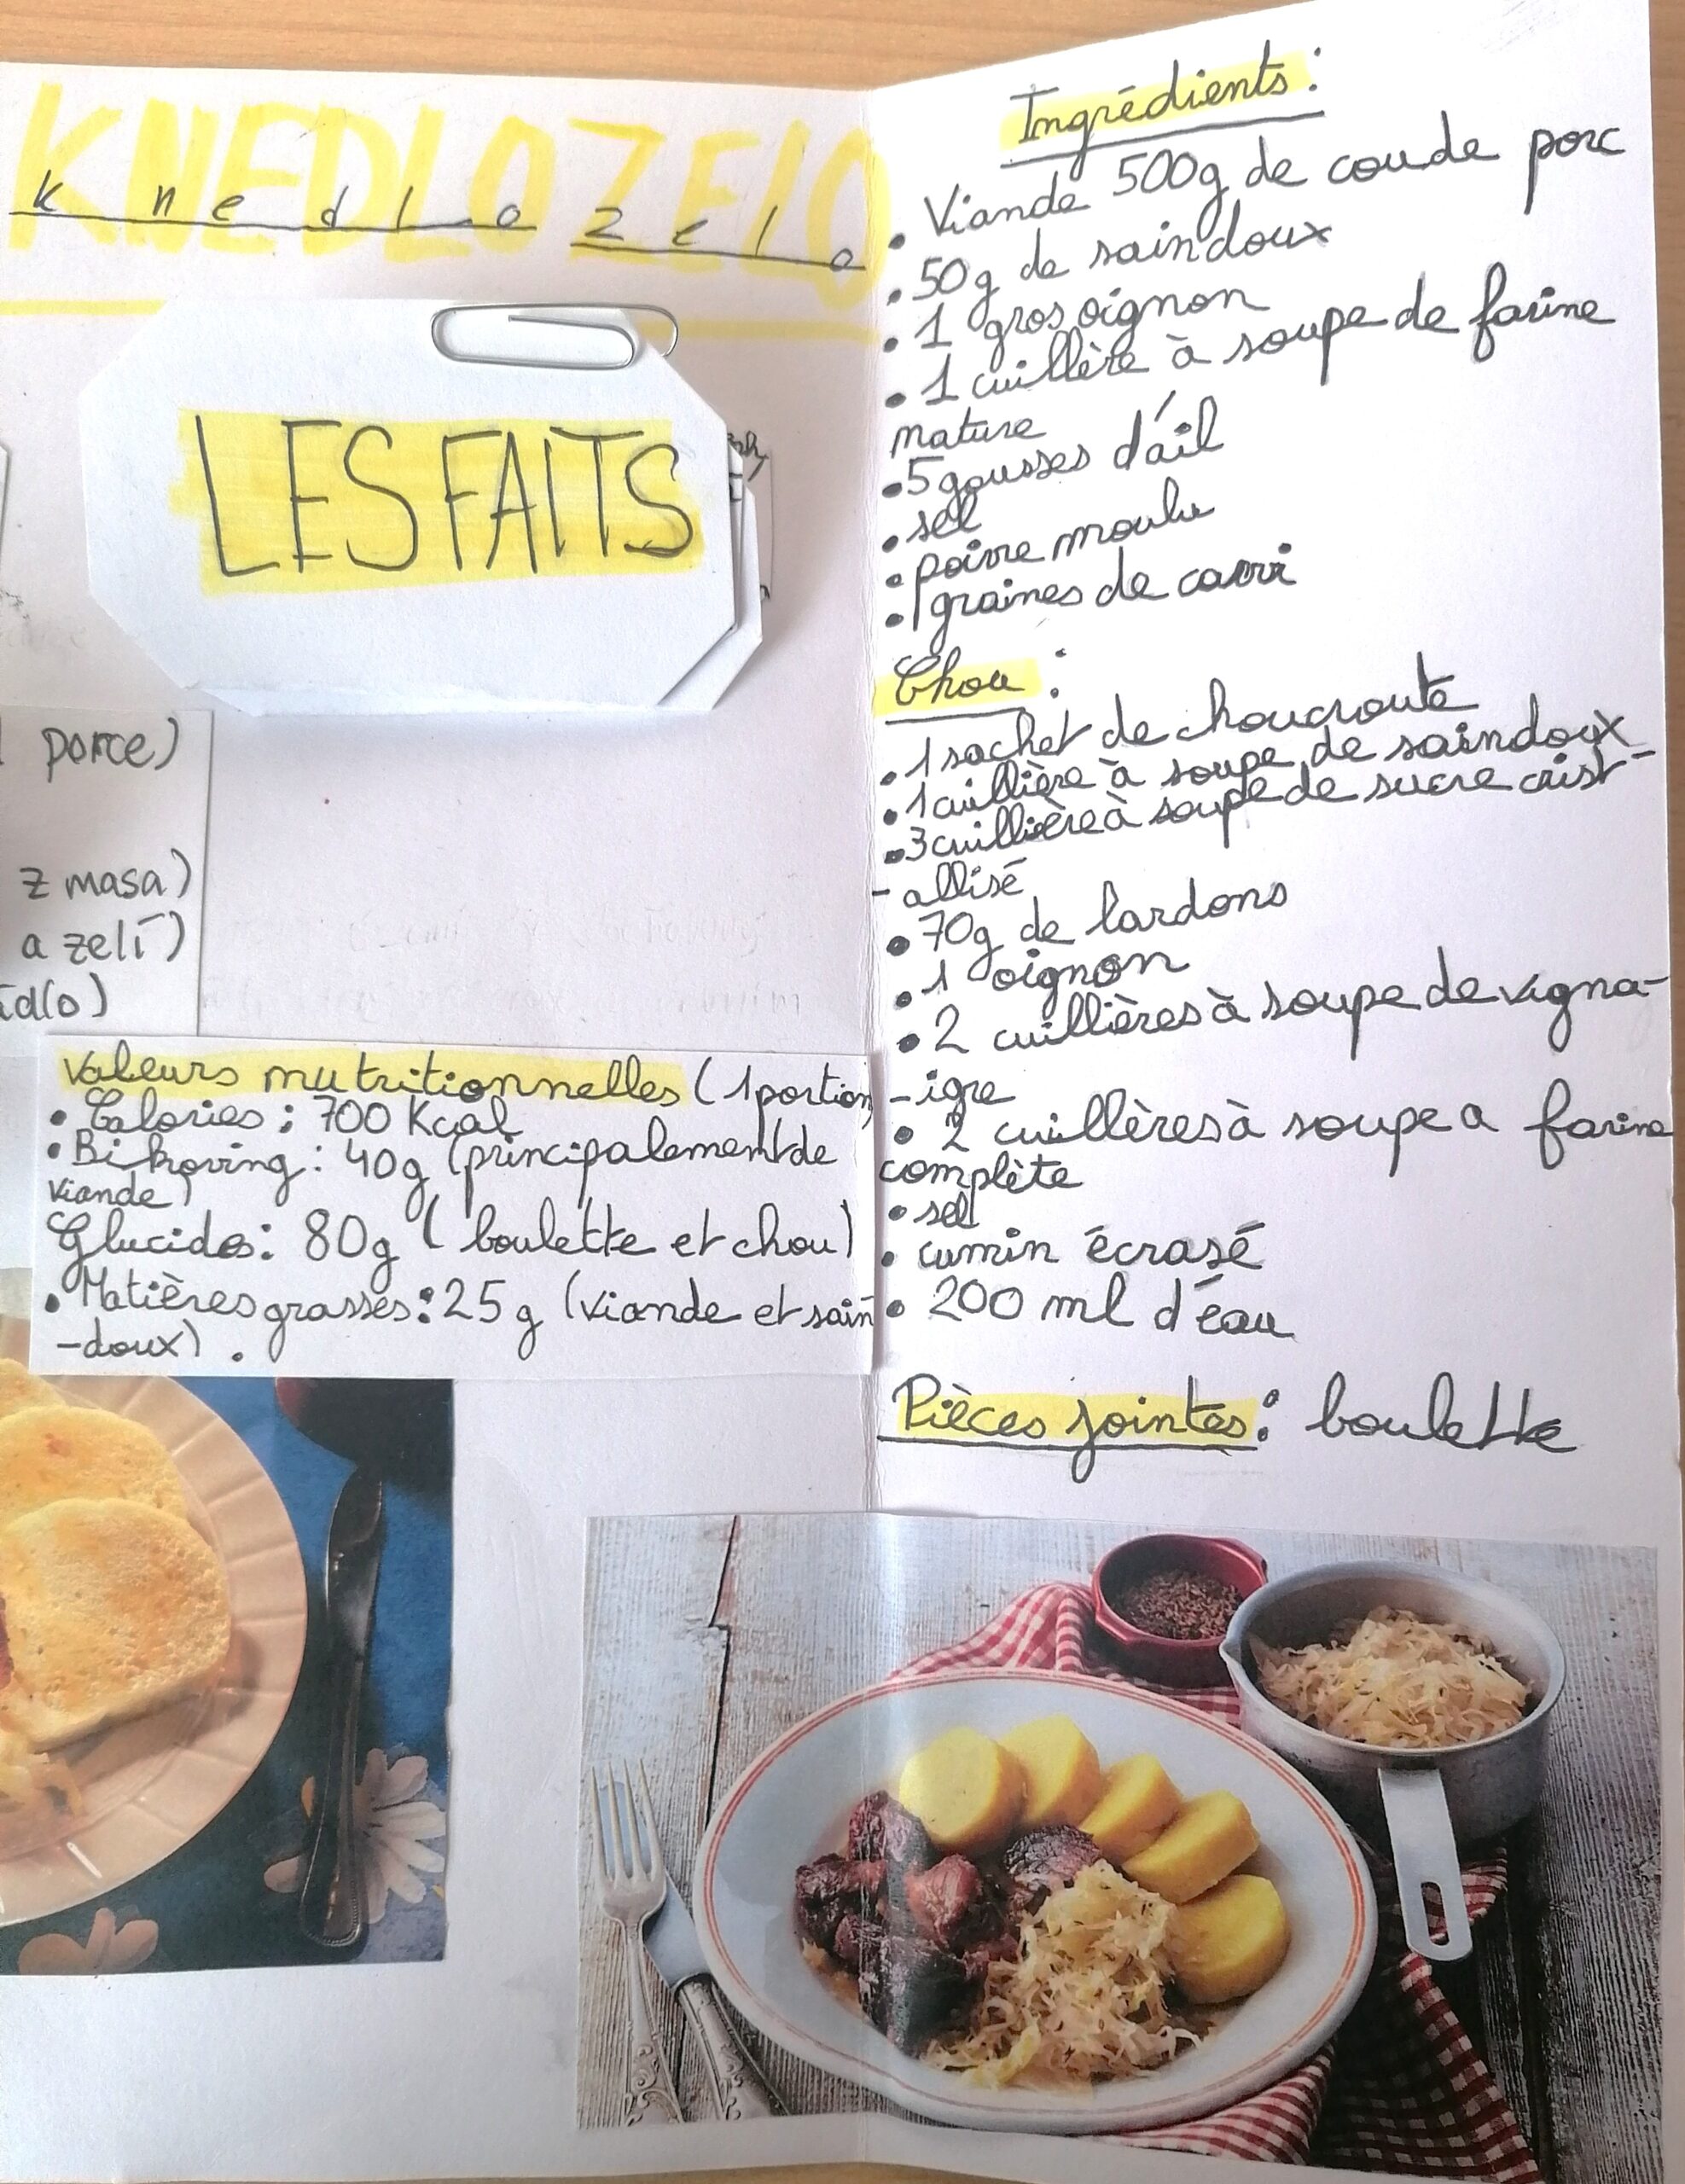 KNEDLO ZELO
k n e d l o z e l o
LES FAITS
porce)
z masa)
a zelí)
Valeurs nutritionnelles (1 portion)
• Calories : 700 Kcal
• Bikoving : 40g (principalement de
viande)
Glucides : 80g (boulette et chou)
• Matières grasses : 25 g (viande et sain
-doux).
Ingrédients :
• Viande 500g de coude porc
• 50g de saindoux
• 1 gros oignon
• 1 cuillère à soupe de farine
nature
• 5 gousses d'ail
• sel
• poivre moulu
• graines de carvi
Chou :
• 1 sachet de choucroute
• 1 cuillière à soupe de saindoux
• 3 cuillière à soupe de sucre crist-
-allisé
• 70g de lardons
• 1 oignon
• 2 cuillières à soupe de vigna-
-igre
• 2 cuillères à soupe a farine
complète
• sel
• cumin écrasé
• 200 ml d'éau
Pièces jointes : boulette